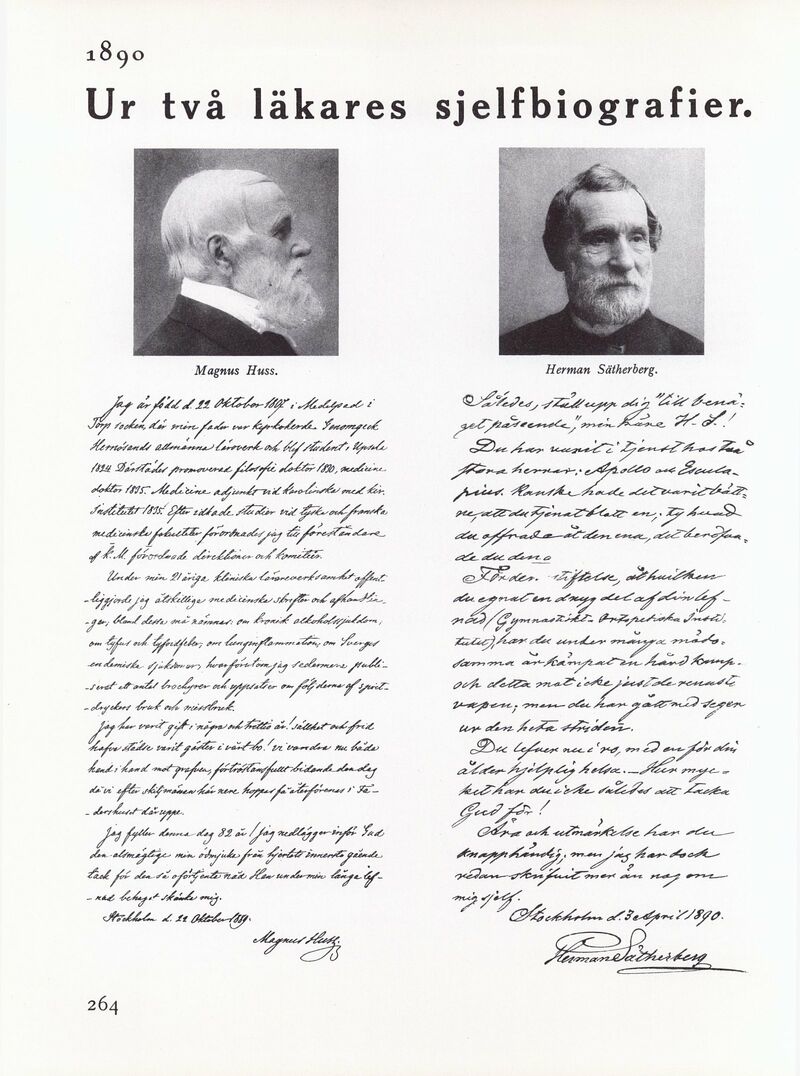 1890
Ur två läkares sjelfbiografier.
Magnus Huss.
Jag är född d. 22 Oktober 1807 i Medelpad i
Torp socken, där min fader var kyrkoherde. Genomgick
Hernösands allmänna läroverk och blef student i Upsala
1824. Därstädes promoverad filosofie doktor 1830, medicine
doktor 1835. Medicine adjunkt vid Karolinska med. kir.
Institutet 1835. Efter idkade studier vid tyska och franska
medicinska fakulteter förordnades jag till föreståndare
af K. M. förordnade direktioner och komitéer.
Under min 21 åriga kliniska lärareverksamhet offent-
-liggjorde jag åtskillige medicinska skrifter och afhandlin-
-gar, bland dessa må nämnas: om kronisk alkoholssjukdom,
om tyfus och tyfoidfeber, om lunginflammation, om Sveriges
endemiska sjukdomar, hvarförutom jag sedermera publi-
-cerat ett antal brochyrer och uppsatser om följderna af sprit-
-dryckers bruk och missbruk.
Jag har varit gift i några och trettio år. Sällhet och frid
hafva städse varit gäster i vårt bo. Vi vandra nu både
hand i hand mot grafven, förtröstansfullt bidande den dag
då vi efter skiljmånan här nere hoppas få återförenas i Fa-
-dershuset däruppe.
Jag fyller denna dag 82 år! Jag nedlägger inför Gud
den allsmägtige min ödmjuka från hjertats innersta gående
tack för den så oförtjenta nåd Han under min långa lef-
-nad behagat skänka mig.
Stockholm d. 22 Oktober 1889.
Magnus Huss.
Herman Sätherberg.
Således, "ställ upp dig" till "benä-
get påseende", min käre H. S.!
Du har varit i tjenst hos två
stora herrar: Apollo och Escula-
pius. Kanske hade det varit bätt-
re, att du tjenat blott en; ty hvad
du offrade åt den ena, det beröfva-
de du den
För den stiftelse, åt hvilken
du egnat en dryg del af din lef-
nad (Gymnastiskt-Ortopediska Insti-
tutet), har du under många mödo-
samma år kämpat en hård kamp,
och detta mot icke just de renaste
vapen; men du har gått med seger
ur den heta striden.
Du lefver nu i ro, med en för din
ålder hjelplig helsa. – Hur myc-
ket har du icke således att tacka
Gud för!
Ära och utmärkelse har du
knapphändig; men jag har dock
redan skrifvit mer än nog om
mig sjelf.
Stockholm d. 3 April 1890.
Herman Sätherberg
264